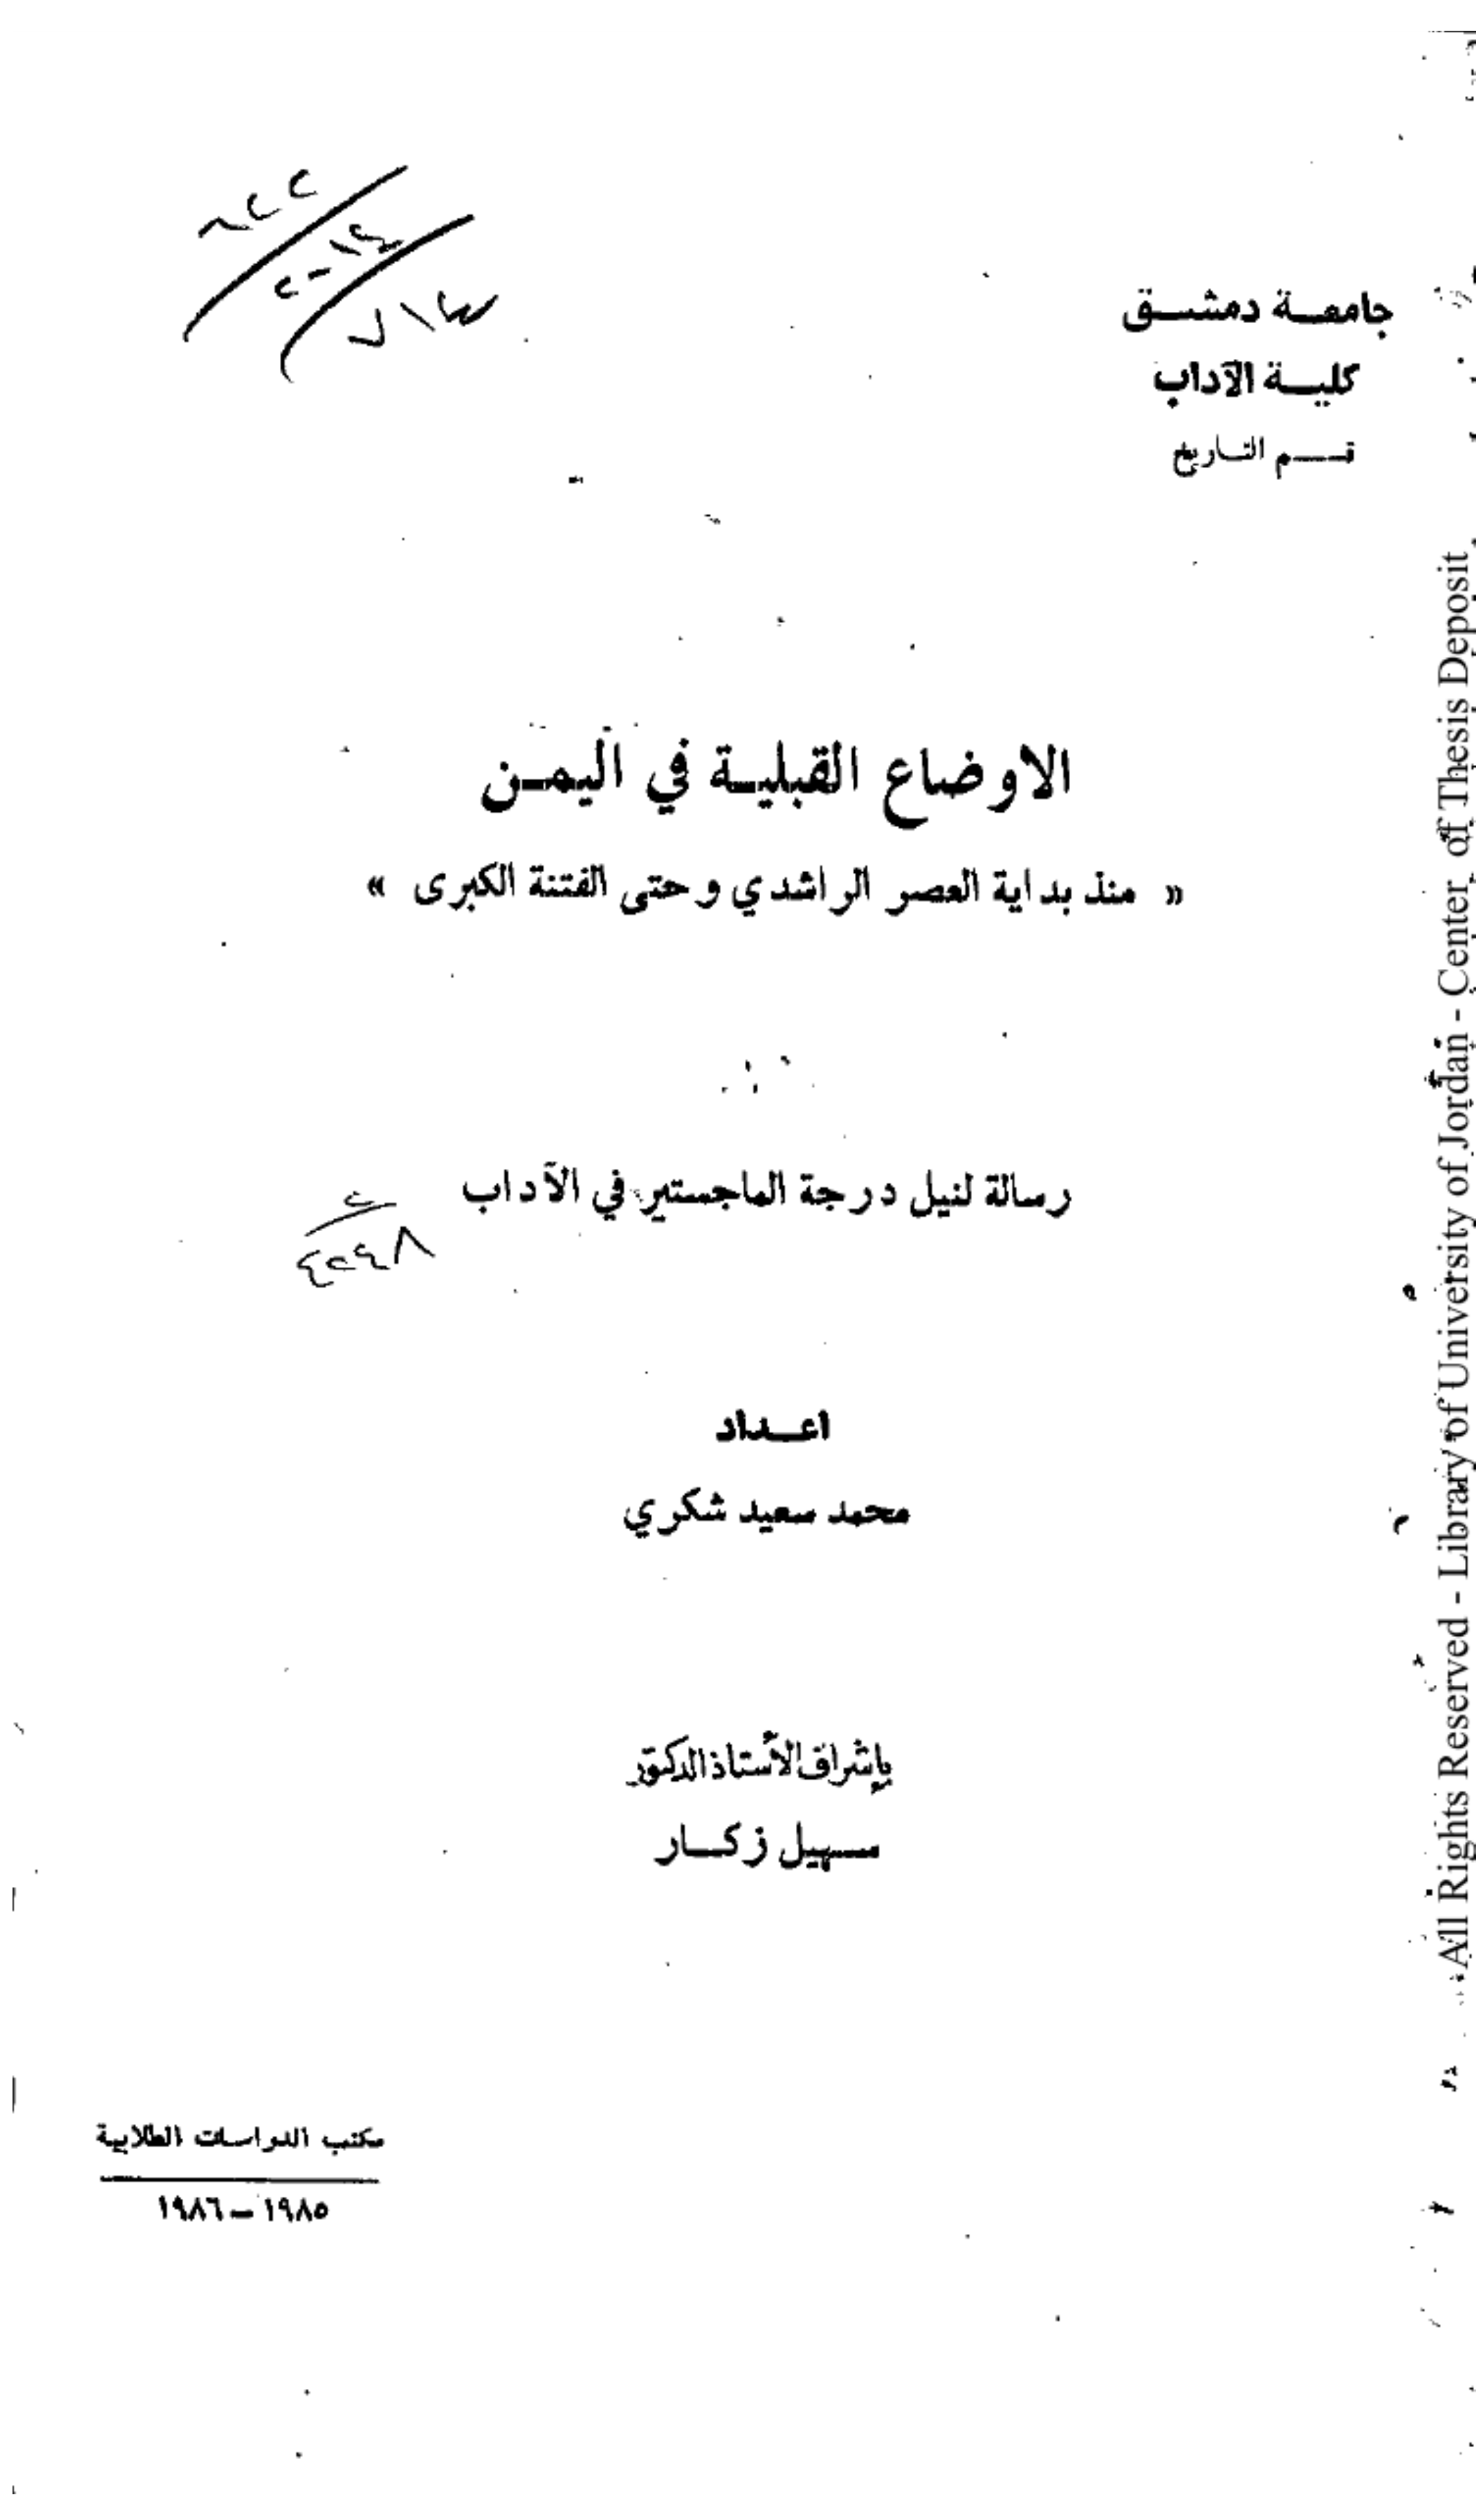 جامعـة دمشـــق
كليـــة الآداب
قـــــم التـاريخ
الاوضاع القبليـة في اليمـن
« منذ بداية العصر الراشدي وحتى الفتنة الكبرى »
رسالة لنيل درجة الماجستير في الآداب
اعـــداد
محمد سعيد شكري
بإشراف الأستاذ الدكتور
ســهيل زكــار
مكتب الدراسات الطلابية
١٩٨٥ – ١٩٨٦
All Rights Reserved - Library of University of Jordan - Center of Thesis Deposit